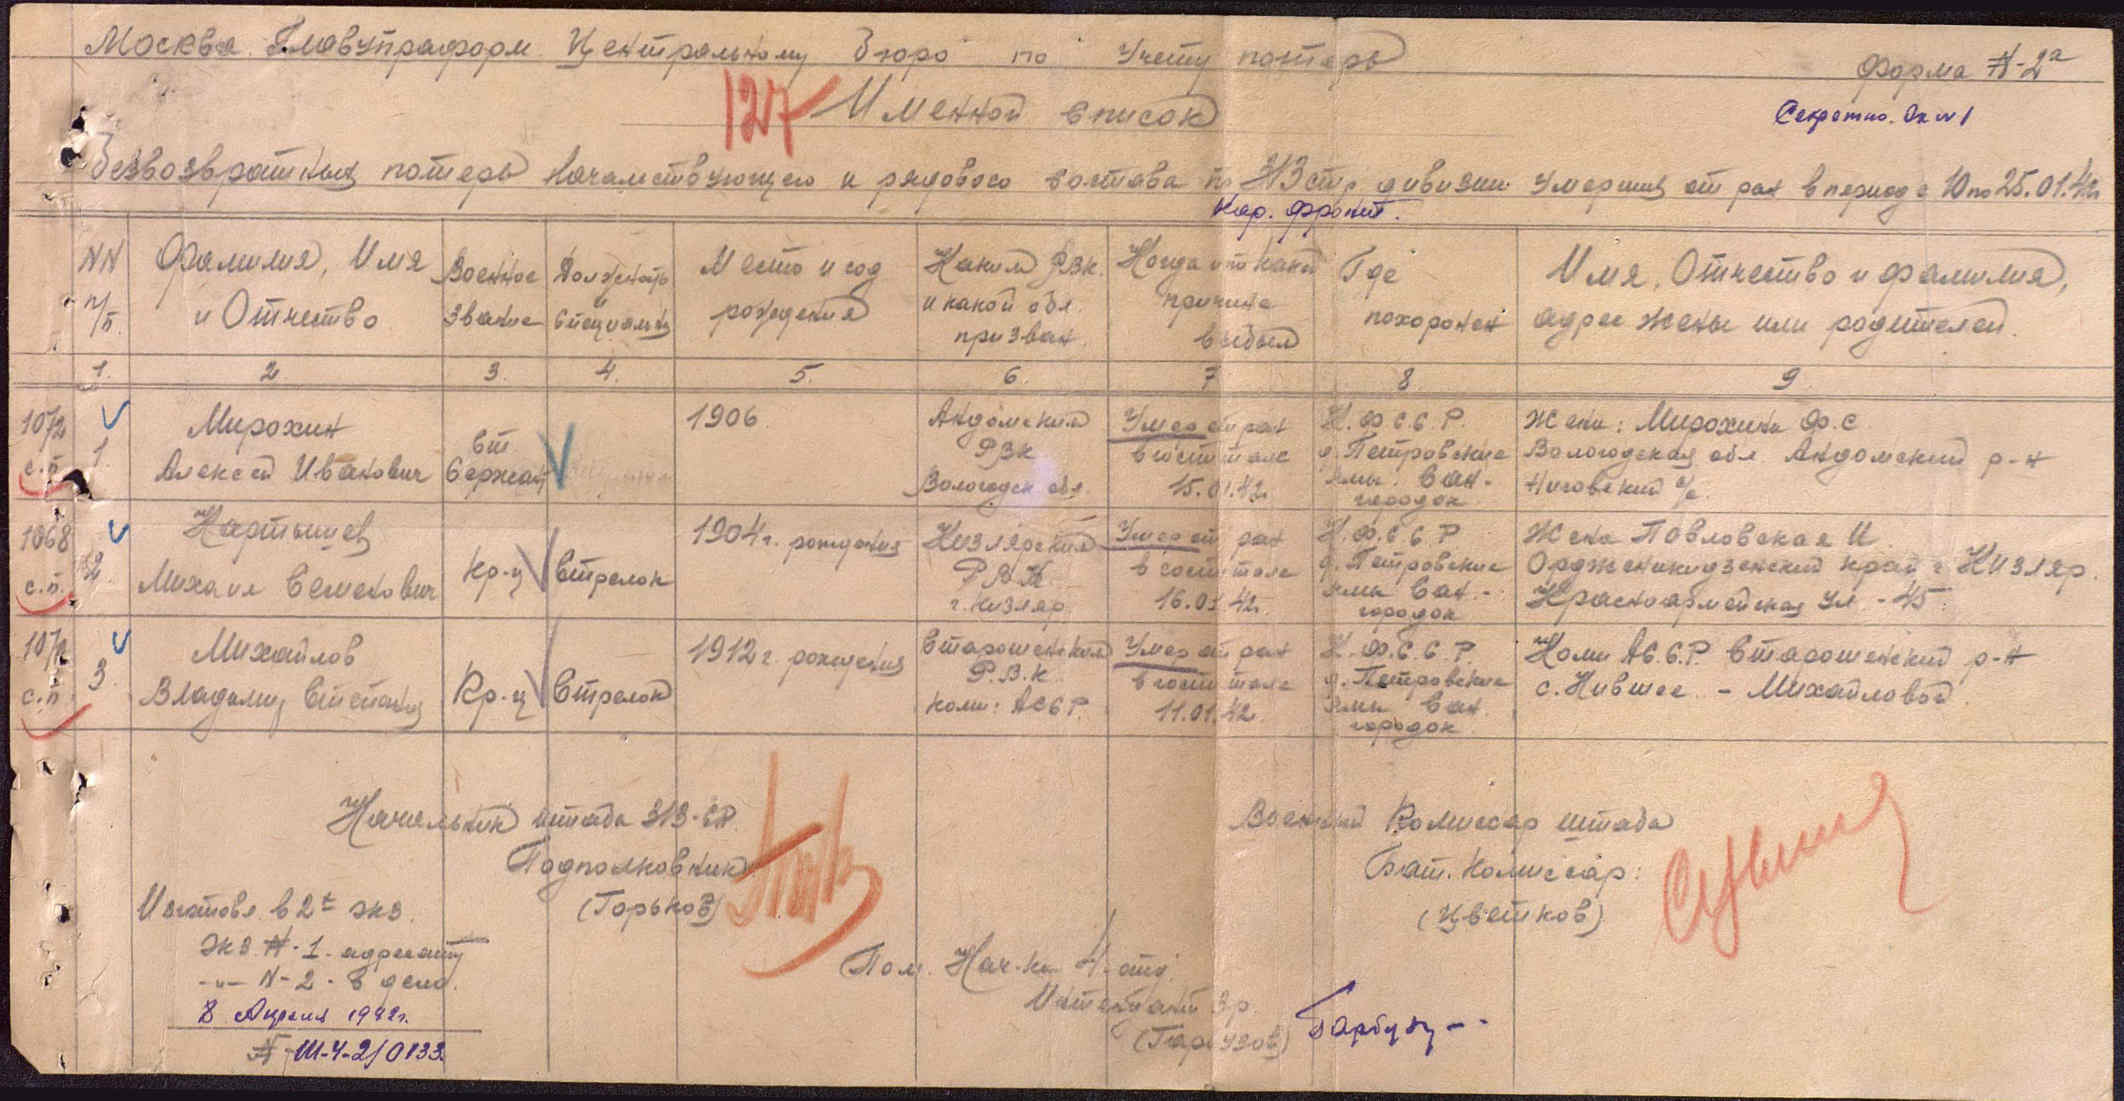 Москва Главупраформ Центральному Бюро по учету потерь
Форма N-2а
127 Именной список
Секретно. Эк N1
Безвозвратных потерь Начальствующего и рядового состава по 313 стр. дивизии умерших от ран в период с 10 по 25.01.42г
Кар. фронт.
NN п/п.
Фамилия, Имя и Отчество
Военное звание
Должность и специальн
Место и год рождения
Каким РВК. и какой обл. призван
Когда и по какой причине выбыл
Где похоронен
Имя, Отчество и фамилия, адрес жены или родителей.
1. 2 3. 4. 5. 6. 7 8 9
1072 с.п.
1.
Мирохин Алексей Иванович
Ст Сержант
1906.
Андомский РВК Вологодск обл.
Умер от ран в госпитале 15.01.42г.
К.Ф.С.С.Р. д. Петровские Ямы. Сан-городок
Жена: Мирохина Ф.С. Вологодская обл Андомский р-н Ниговский с/с.
1068 с.п.
2
Картышев Михаил Семенович
Кр-ц
Стрелок
1904г. рождения
Кизлярский Р.В.К г. Кизляр
Умер от ран в госпитале 16.01.42г.
К.Ф.С.С.Р д. Петровские Ямы Сан.-городок
Жена Павловская И. Орджоникидзевский край г. Кизляр. Красноармейская ул - 45
1072 с.п.
3.
Михайлов Владимир Степанов
Кр-ц
Стрелок
1912г. рождения
Р.В.К Коми: АССР.
Умер от ран в госпитале 11.01.42г.
К.Ф.С.С.Р. д. Петровские Ямы Сан. городок
Коми АССР. р-н с. - Михайловой
Начальник штаба 313-СД.
Подполковник
(Горьков)
Военный Комиссар штаба
Бат. Комиссар:
(Цветков)
Изготовл. в 2х экз.
Экз N-1. адресату
-"- N-2- в дело.
8 Апреля 1942г.
N-Ш-4-2/0133
Пом. Нач-ка 4-отд.
Интендант 3р.
(Гарбузов)